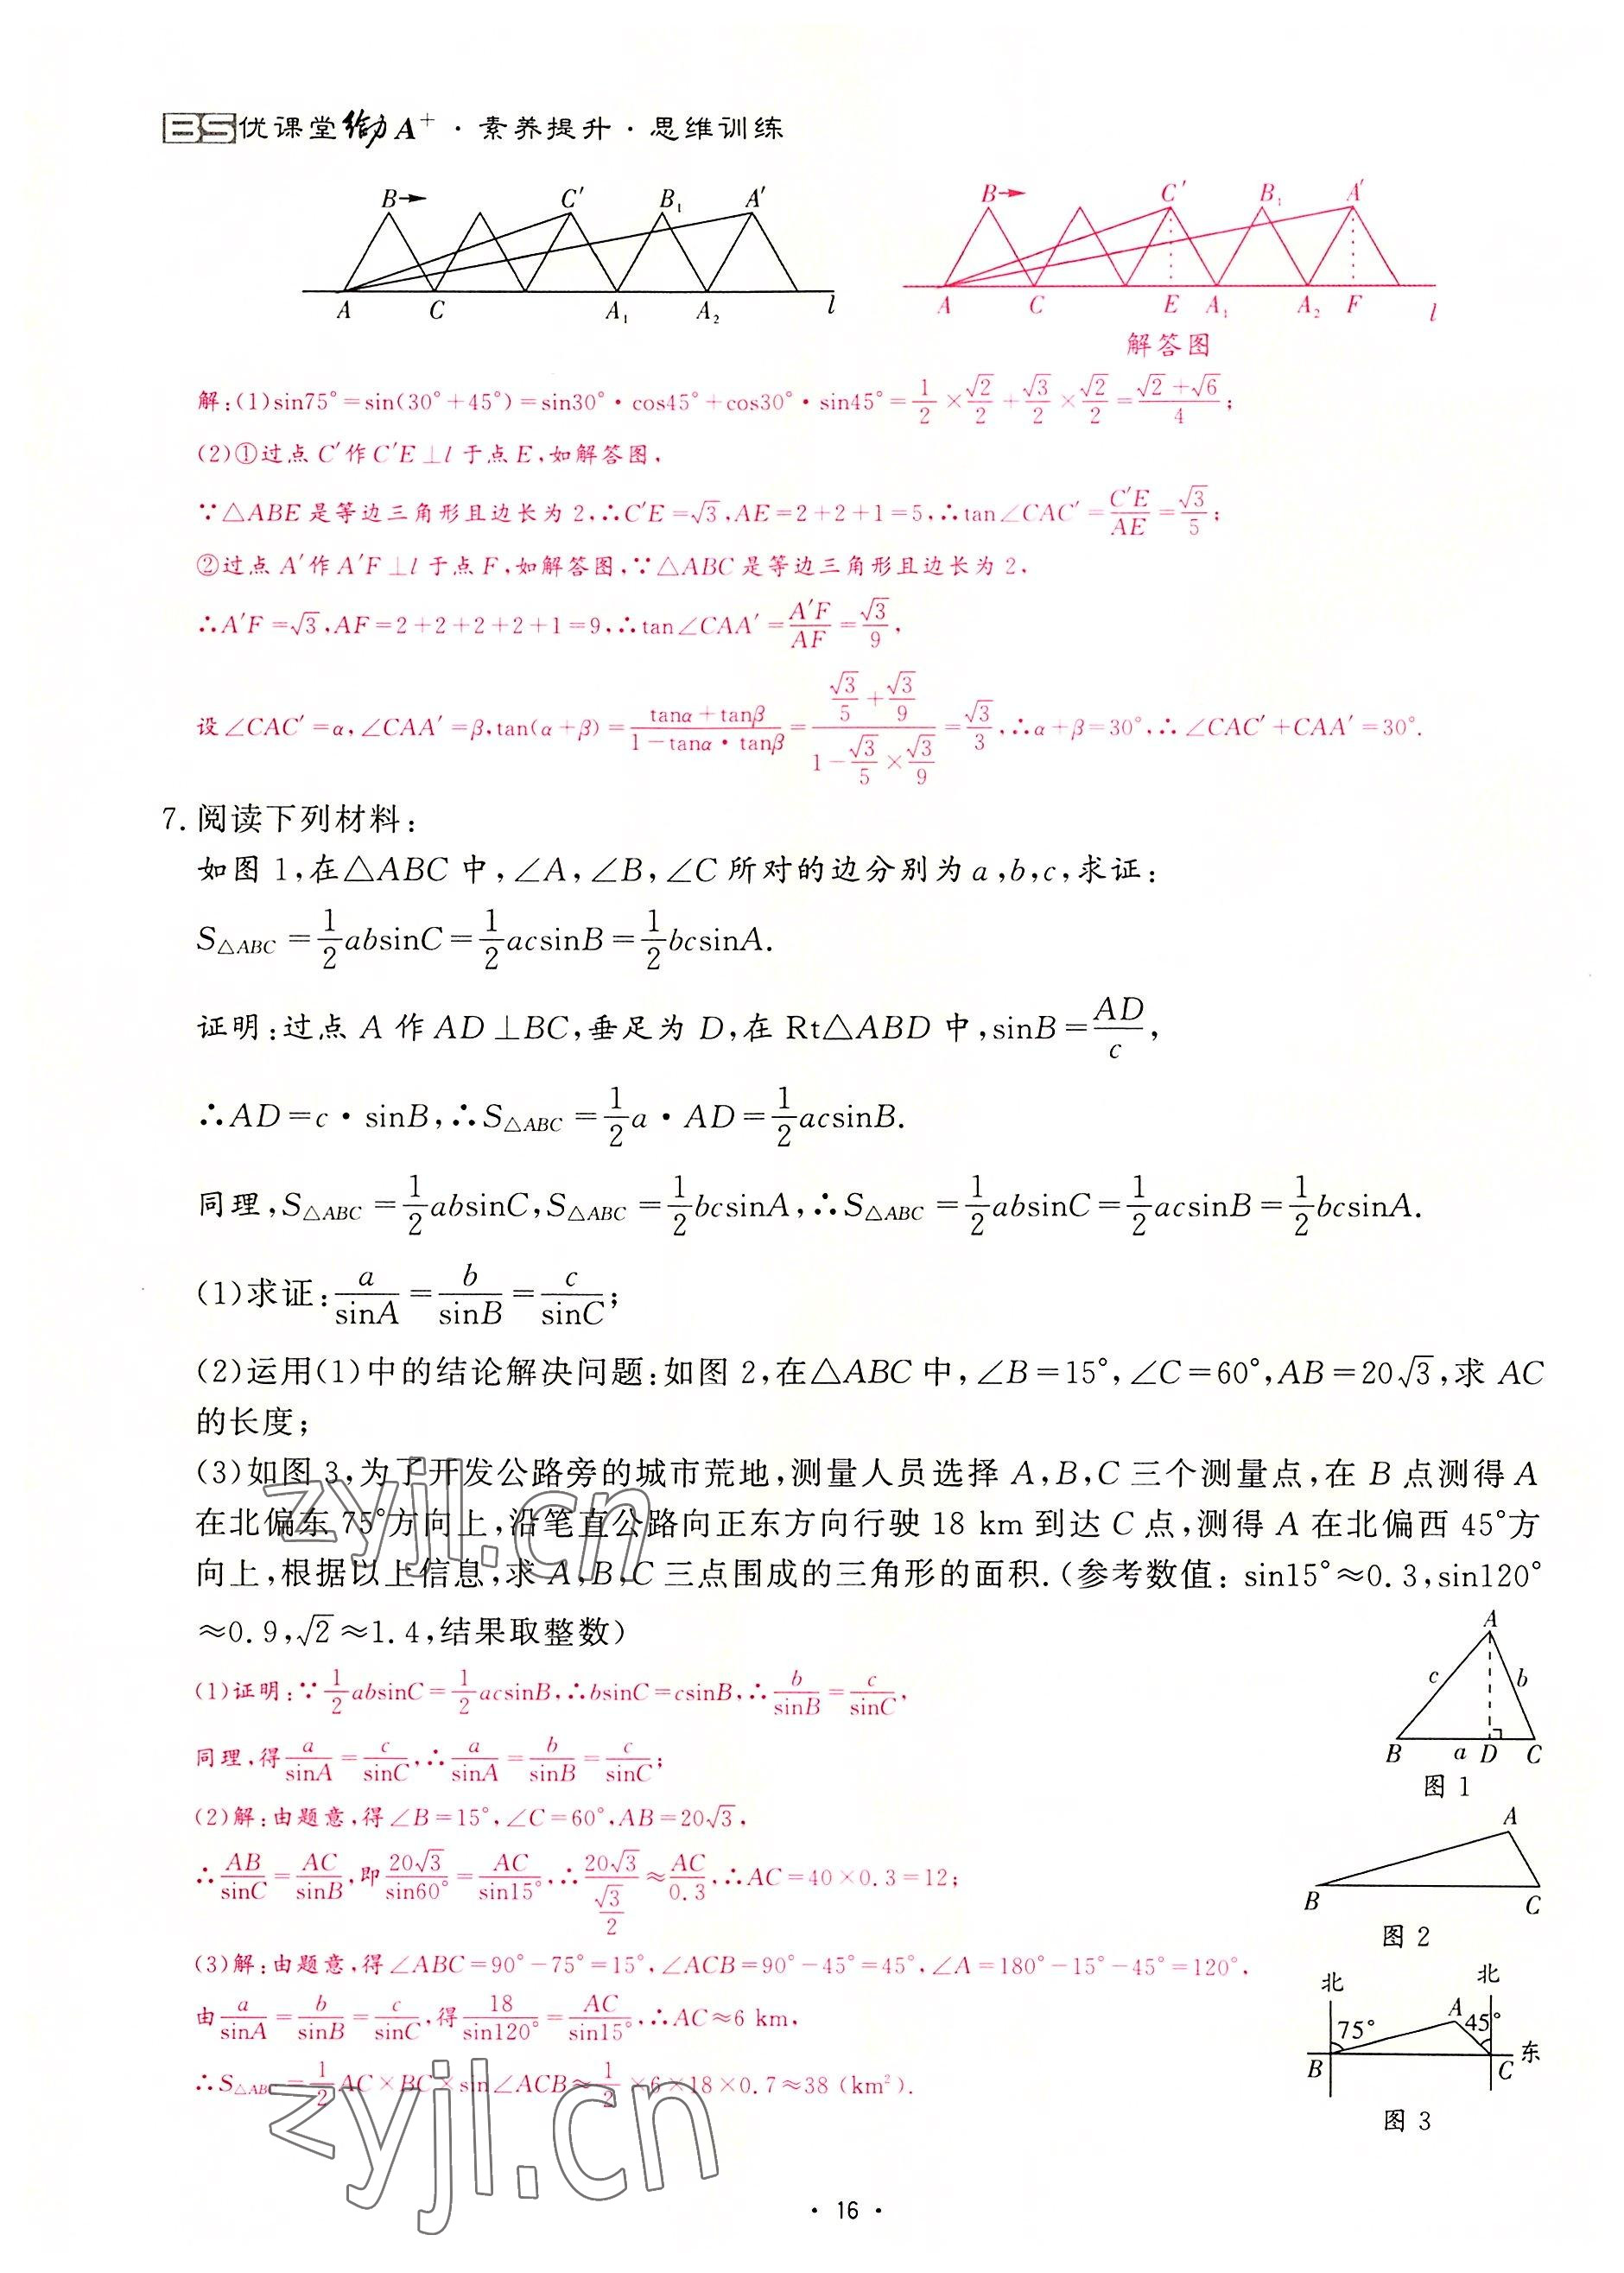 BS优课堂给力A⁺·素养提升·思维训练
B→ C′ B₁ A′
A C A₁ A₂ l
B→ C′ B₁ A′
A C E A₁ A₂ F l
解答图
解:(1)sin75°=sin(30°+45°)=sin30°·cos45°+cos30°·sin45°=1/2×√2/2+√3/2×√2/2=(√2+√6)/4;
(2)①过点C′作C′E⊥l于点E,如解答图,
∵△ABE是等边三角形且边长为2,∴C′E=√3,AE=2+2+1=5,∴tan∠CAC′=C′E/AE=√3/5;
②过点A′作A′F⊥l于点F,如解答图,∵△ABC是等边三角形且边长为2,
∴A′F=√3,AF=2+2+2+2+1=9,∴tan∠CAA′=A′F/AF=√3/9,
设∠CAC′=α,∠CAA′=β,tan(α+β)=(tanα+tanβ)/(1-tanα·tanβ)=(√3/5+√3/9)/(1-√3/5×√3/9)=√3/3,∴α+β=30°,∴∠CAC′+CAA′=30°.
7.阅读下列材料:
如图1,在△ABC中,∠A,∠B,∠C所对的边分别为a,b,c,求证:
S△ABC=1/2absinC=1/2acsinB=1/2bcsinA.
证明:过点A作AD⊥BC,垂足为D,在Rt△ABD中,sinB=AD/c,
∴AD=c·sinB,∴S△ABC=1/2a·AD=1/2acsinB.
同理,S△ABC=1/2absinC,S△ABC=1/2bcsinA,∴S△ABC=1/2absinC=1/2acsinB=1/2bcsinA.
(1)求证:a/sinA=b/sinB=c/sinC;
(2)运用(1)中的结论解决问题:如图2,在△ABC中,∠B=15°,∠C=60°,AB=20√3,求AC
的长度;
(3)如图3,为了开发公路旁的城市荒地,测量人员选择A,B,C三个测量点,在B点测得A
在北偏东75°方向上,沿笔直公路向正东方向行驶18 km到达C点,测得A在北偏西45°方
向上,根据以上信息,求A,B,C三点围成的三角形的面积.(参考数值:sin15°≈0.3,sin120°
≈0.9,√2≈1.4,结果取整数)
(1)证明:∵1/2absinC=1/2acsinB,∴bsinC=csinB,∴b/sinB=c/sinC,
同理,得a/sinA=c/sinC,∴a/sinA=b/sinB=c/sinC;
(2)解:由题意,得∠B=15°,∠C=60°,AB=20√3,
∴AB/sinC=AC/sinB,即20√3/sin60°=AC/sin15°,∴20√3/(√3/2)≈AC/0.3,∴AC=40×0.3=12;
(3)解:由题意,得∠ABC=90°-75°=15°,∠ACB=90°-45°=45°,∠A=180°-15°-45°=120°,
由a/sinA=b/sinB=c/sinC,得18/sin120°=AC/sin15°,∴AC≈6 km,
∴S△ABC=1/2AC×BC×sin∠ACB≈1/2×6×18×0.7≈38 (km²).
A
c b
B a D C
图1
A
B C
图2
北 北
75° A 45°
B C 东
图3
zyjl.cn
zyjl.cn
·16·